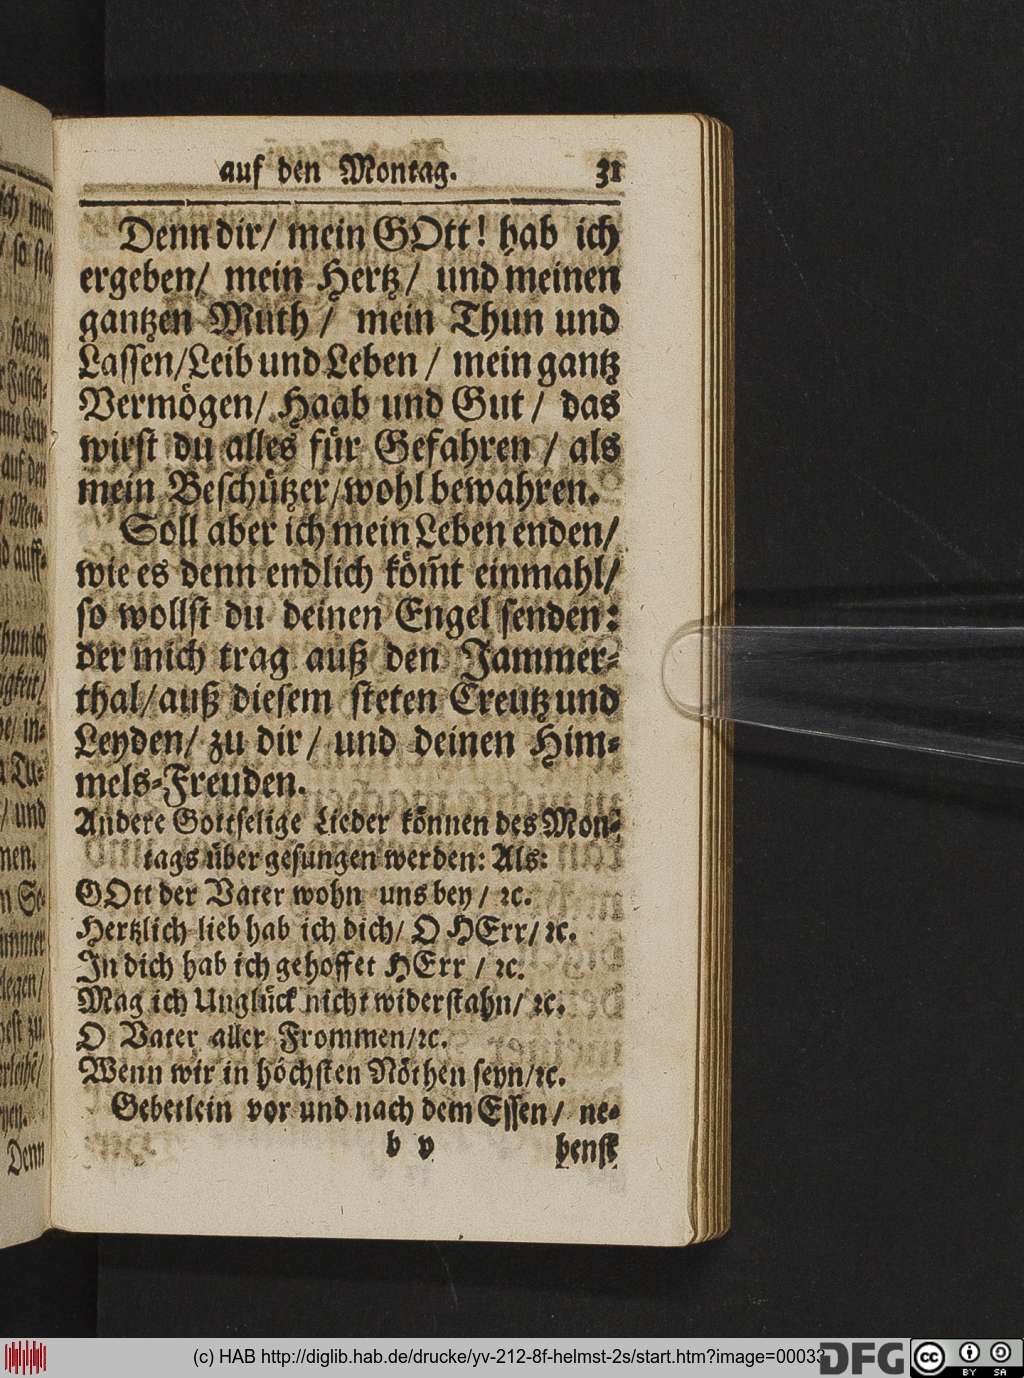 auf den Montag. 31
Denn dir/ mein GOtt! hab ich
ergeben/ mein Hertz/ und meinen
gantzen Muth/ mein Thun und
Lassen/Leib und Leben/ mein gantz
Vermögen/ Haab und Gut/ das
wirst du alles für Gefahren/ als
mein Beschützer/wohl bewahren.
Soll aber ich mein Leben enden/
wie es denn endlich kom̃t einmahl/
so wollst du deinen Engel senden:
der mich trag auß den Jammer-
thal/auß diesem steten Creutz und
Leyden/ zu dir/ und deinen Him-
mels-Freuden.
Andere Gottselige Lieder können des Mon-
tags über gesungen werden: Als:
GOtt der Vater wohn uns bey/ ꝛc.
Hertzlich lieb hab ich dich/ O HErr/ ꝛc.
In dich hab ich gehoffet HErr/ ꝛc.
Mag ich Unglück nicht widerstahn/ ꝛc.
O Vater aller Frommen/ꝛc.
Wenn wir in höchsten Nöthen seyn/ꝛc.
Gebetlein vor und nach dem Essen/ ne-
b v benst
solchen
auf den
Men-
/ und
nen.
immer
Denn
(c) HAB http://diglib.hab.de/drucke/yv-212-8f-helmst-2s/start.htm?image=00033
DFG
cc BY SA